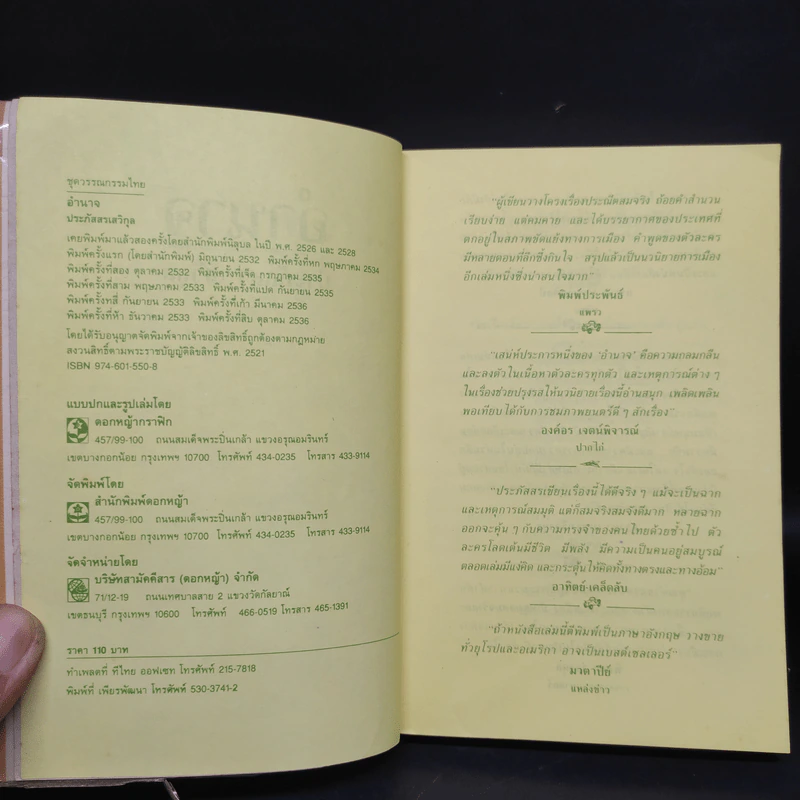 ชุดวรรณกรรมไทย
อำนาจ
ประภัสสรเสวิกุล
เคยพิมพ์มาแล้วสองครั้งโดยสำนักพิมพ์นิลุบล ในปี พ.ศ. 2526 และ 2528
พิมพ์ครั้งแรก (โดยสำนักพิมพ์) มิถุนายน 2532 พิมพ์ครั้งที่หก พฤษภาคม 2534
พิมพ์ครั้งที่สอง ตุลาคม 2532 พิมพ์ครั้งที่เจ็ด กรกฎาคม 2535
พิมพ์ครั้งที่สาม พฤษภาคม 2533 พิมพ์ครั้งที่แปด กันยายน 2535
พิมพ์ครั้งที่สี่ กันยายน 2533 พิมพ์ครั้งที่เก้า มีนาคม 2536
พิมพ์ครั้งที่ห้า ธันวาคม 2533 พิมพ์ครั้งที่สิบ ตุลาคม 2536
โดยได้รับอนุญาตจัดพิมพ์จากเจ้าของลิขสิทธิ์ถูกต้องตามกฎหมาย
สงวนสิทธิ์ตามพระราชบัญญัติลิขสิทธิ์ พ.ศ. 2521
ISBN 974-601-550-8
แบบปกและรูปเล่มโดย
ดอกหญ้ากราฟิก
457/99-100 ถนนสมเด็จพระปิ่นเกล้า แขวงอรุณอมรินทร์
เขตบางกอกน้อย กรุงเทพฯ 10700 โทรศัพท์ 434-0235 โทรสาร 433-9114
จัดพิมพ์โดย
สำนักพิมพ์ดอกหญ้า
457/99-100 ถนนสมเด็จพระปิ่นเกล้า แขวงอรุณอมรินทร์
เขตบางกอกน้อย กรุงเทพฯ 10700 โทรศัพท์ 434-0235 โทรสาร 433-9114
จัดจำหน่ายโดย
บริษัทสามัคคีสาร (ดอกหญ้า) จำกัด
71/12-19 ถนนเทศบาลสาย 2 แขวงวัดกัลยาณ์
เขตธนบุรี กรุงเทพฯ 10600 โทรศัพท์ 466-0519 โทรสาร 465-1391
ราคา 110 บาท
ทำเพลตที่ ทีไทย ออฟเซท โทรศัพท์ 215-7818
พิมพ์ที่ เพียรพัฒนา โทรศัพท์ 530-3741-2
“ผู้เขียนวางโครงเรื่องประณีตสมจริง ถ้อยคำสำนวน
เรียบง่าย แต่คมคาย และได้บรรยากาศของประเทศที่
ตกอยู่ในสภาพขัดแย้งทางการเมือง คำพูดของตัวละคร
มีหลายตอนที่ลึกซึ้งกินใจ สรุปแล้วเป็นนวนิยายการเมือง
อีกเล่มหนึ่งซึ่งน่าสนใจมาก”
พิมพ์ประพันธ์
แพรว
“เสน่ห์ประการหนึ่งของ ‘อำนาจ’ คือความกลมกลืน
และลงตัวในเนื้อหาตัวละครทุกตัว และเหตุการณ์ต่าง ๆ
ในเรื่องช่วยปรุงรสให้นวนิยายเรื่องนี้อ่านสนุก เพลิดเพลิน
พอเทียบได้กับการชมภาพยนตร์ดี ๆ สักเรื่อง”
องค์อร เจตน์พิจารณ์
ปากไก่
“ประภัสสรเขียนเรื่องนี้ได้ดีจริง ๆ แม้จะเป็นฉาก
และเหตุการณ์สมมุติ แต่ก็สมจริงสมจังดีมาก หลายฉาก
ออกจะคุ้น ๆ กับความทรงจำของคนไทยด้วยซ้ำไป ตัว
ละครโลดเต้นมีชีวิต มีพลัง มีความเป็นคนอยู่สมบูรณ์
ตลอดเล่มมีแง่คิด และกระตุ้นให้คิดทั้งทางตรงและทางอ้อม”
อาทิตย์-เคล็ดลับ
“ถ้าหนังสือเล่มนี้ตีพิมพ์เป็นภาษาอังกฤษ วางขาย
ทั่วยุโรปและอเมริกา อาจเป็นเบสต์เซลเลอร์”
มาตาปีย์
แหล่งข่าว